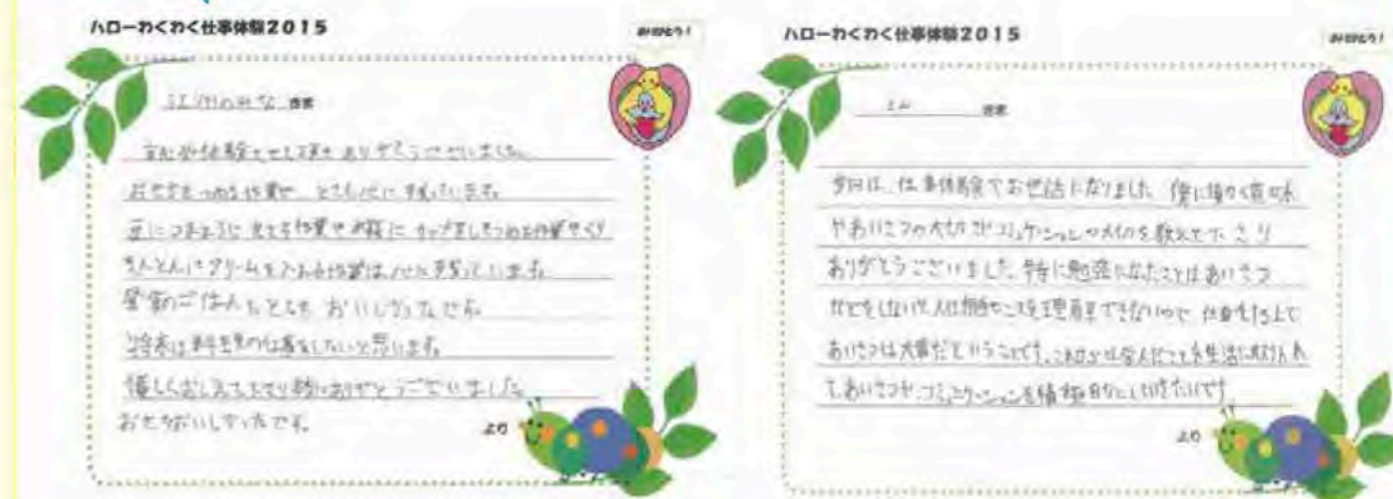 ハローわくわく仕事体験2015
ありがとう!
のみな 様
体験させて頂き ありがとうございました。
おせちをつめる作業が とても心に残っています。
豆につまようじ 作業や お箱に カップ をつめる作業やくり
きんとんにクリームを入れる作業は 心に残っています。
昼食のごはんもとても おいしかったです。
将来は料理の仕事をしたいと思います。
優しくおしえて下さり ありがとうございました。
おせちおいしかったです。
より
ハローわくわく仕事体験2015
ありがとう!
今日は、仕事体験でお世話になりました。 僕に
やあいさつの大切さ コミュニケーションの大切さを教えて下さり
ありがとうございました。特に勉強になったことはあいさつ
などをしないと人は ことを理解できないので 仕事をする上で
あいさつは大事だということです。これからは学んだことを生活に取り入れ
てあいさつや、コミュニケーションを積極的にしていきたいです。
より